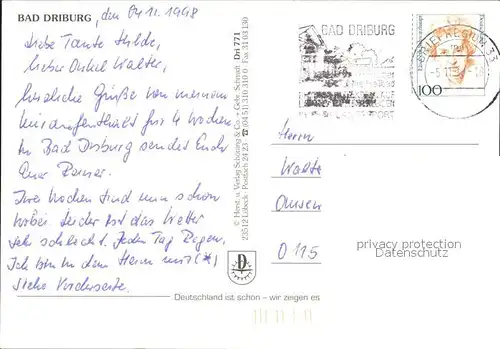 BAD DRIBURG, den 04.11.1998
Liebe Tante Hilde,
lieber Onkel Walter,
herzliche Grüße von meinem
Kuraufenthalt für 4 Wochen
in Bad Driburg sendet Euch
Euer Rainer.
Zwei Wochen sind nun schon
vorbei. Leider ist das Wetter
sehr schlecht. Jeden Tag Regen.
Ich bin in dem Heim mit (*)
siehe Vorderseite.
© Horst u. Verlag Schöning & Co + Gebr. Schmidt Dri 771
23512 Lübeck Postfach 24 23 ☎ (04 51) 310 310 Fax 31 03 130
BAD DRIBURG
BRIEFREGION 3
100
Herrn
Walte
O 115
privacy protection
Datenschutz
Deutschland ist schön – wir zeigen es